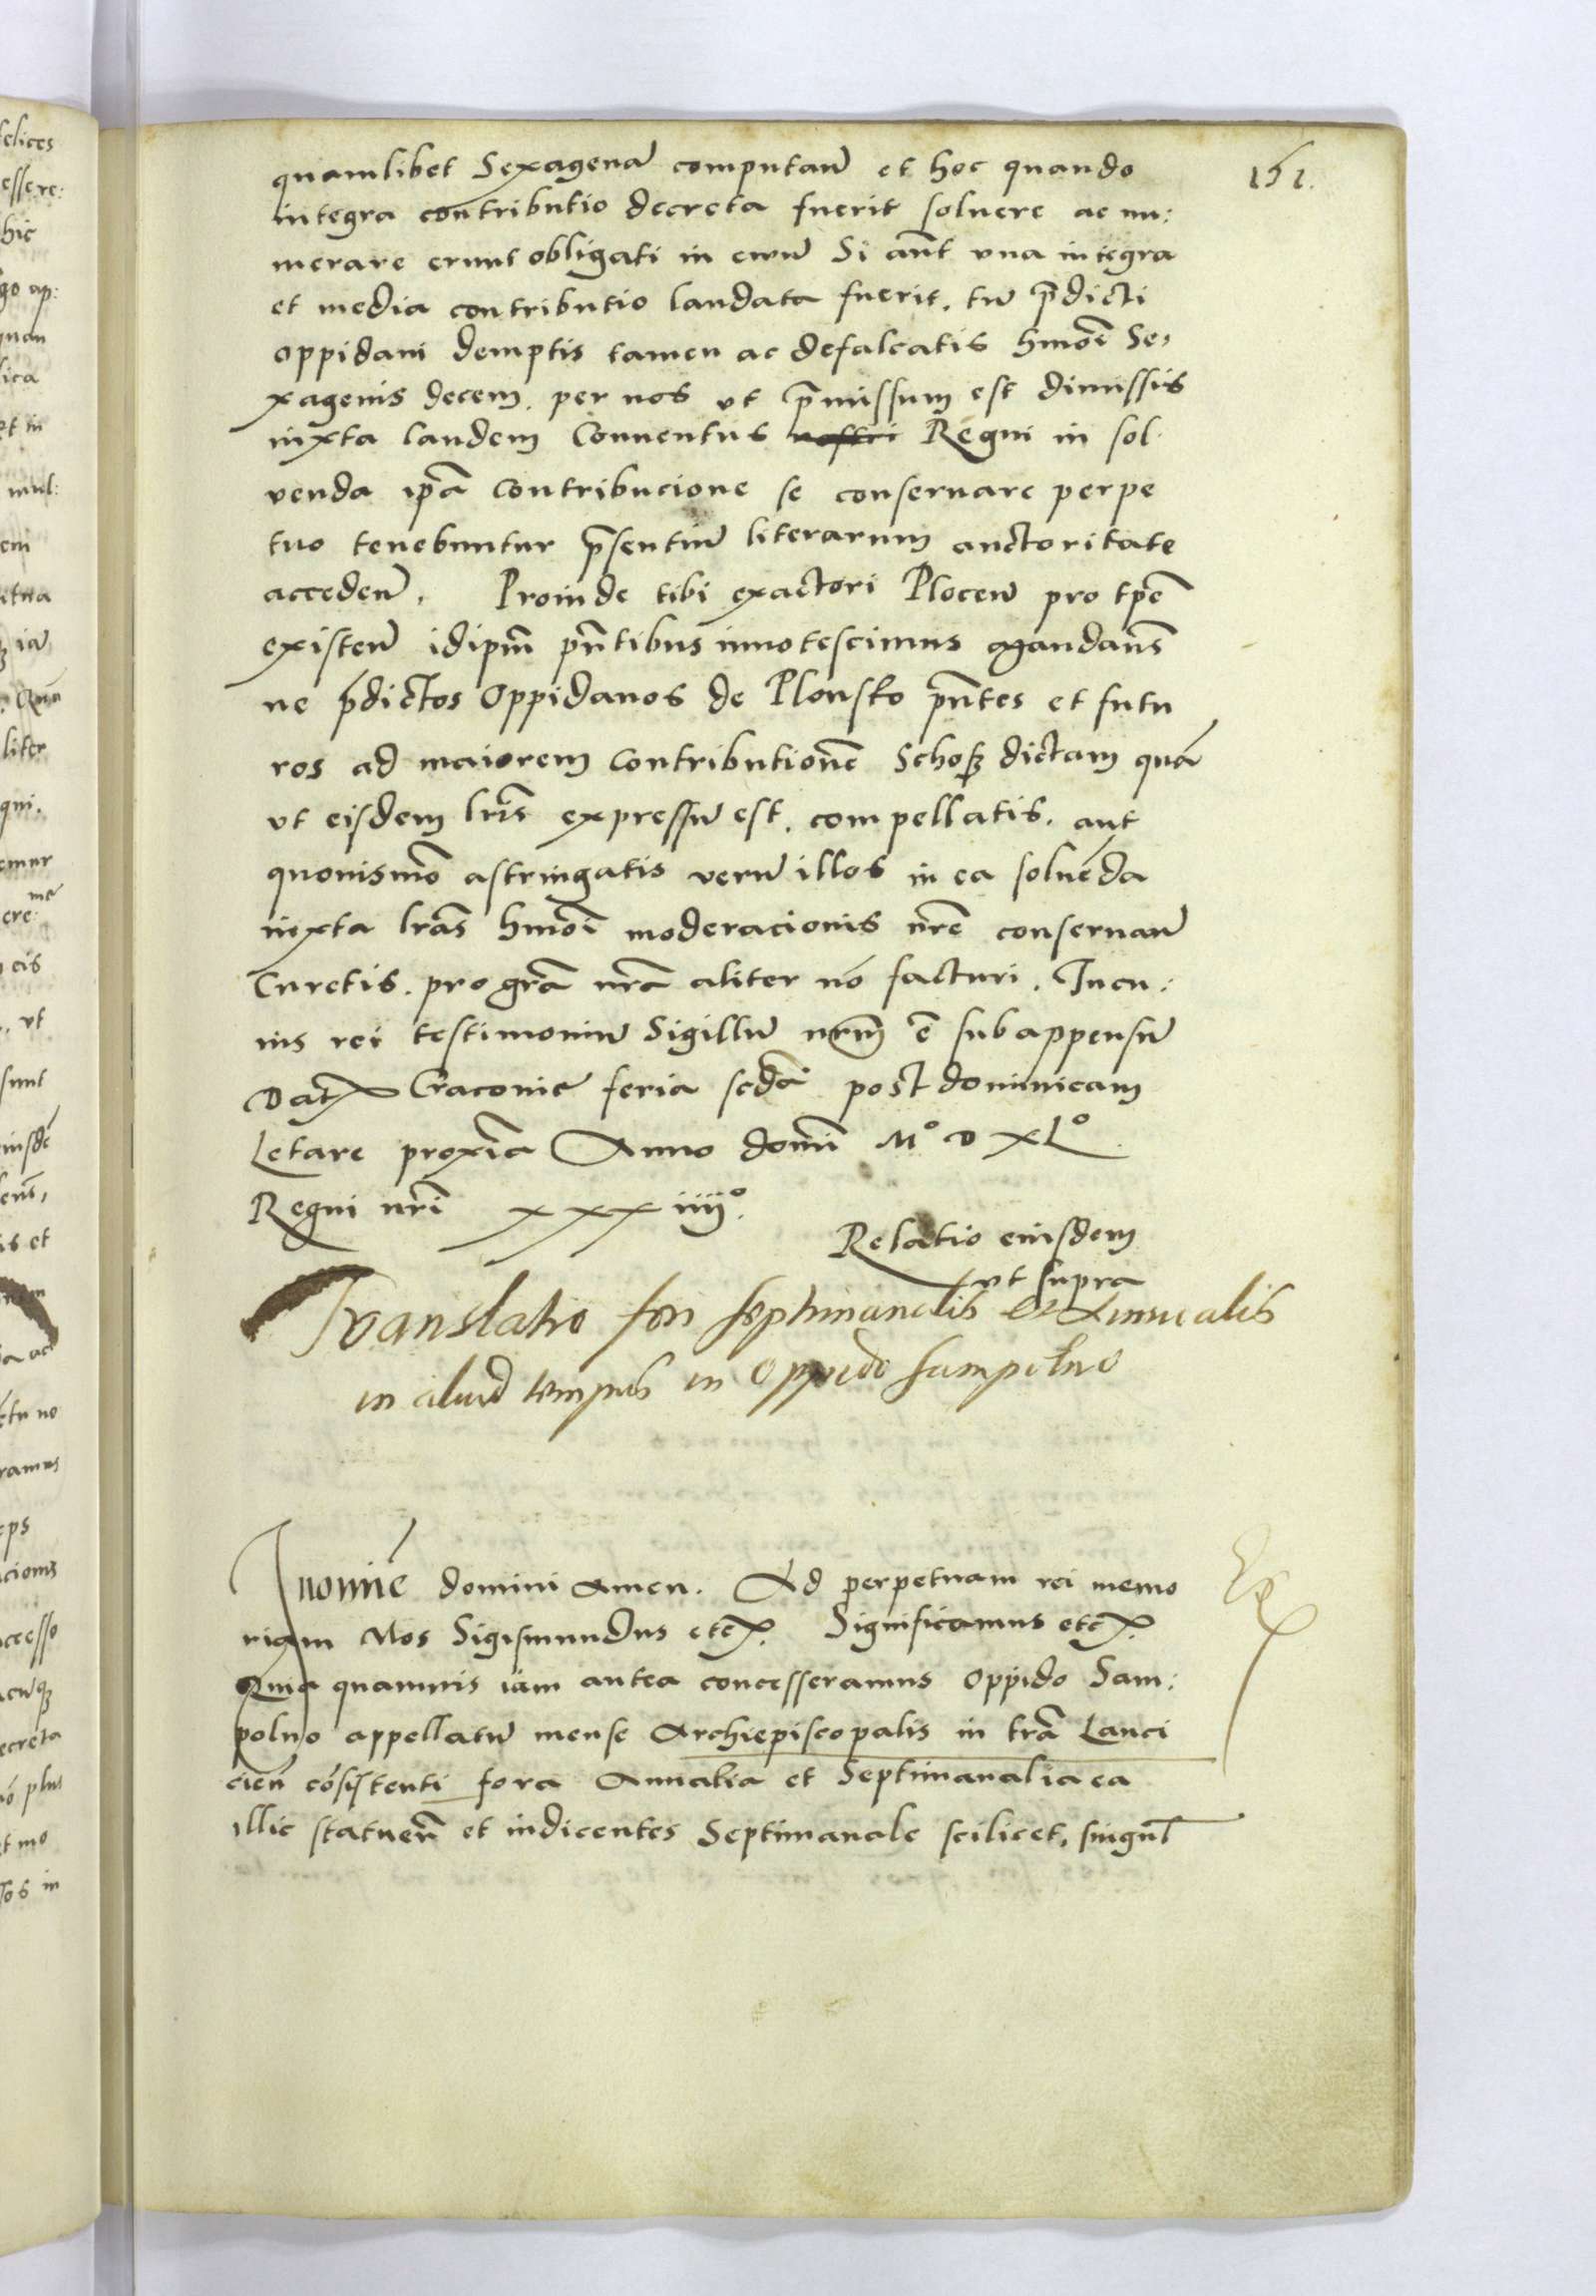 151.
quamlibet Sexagenā computanđ et hoc quando
integra contributio decreta fuerit soluere ac nu:
merare erunt obligati in ewū Si aūt vna integra
et media contributio laudata fuerit. tū p̄dicti
oppidani demptis tamen ac defalcatis hmōi Se,
xagenis decem. per nos vt p̄missum est dimissis
iuxta laudem Conuentus nostri Regni in sol.
venda ip̄a contribucione se conseruare perpe
tuo tenebuntur p̄sentiū literarum auctoritate
acceden̄. Proinde tibi exactori Plocen̄ pro tp̄e
existen̄ idipm̄ pn̄tibus innotescimus Mandan̄s
ne p̄dictos Oppidanos de Plonsko pn̄tes et futu
ros ad maiorem contributionē Schoß dictam quā
vt eisdem lr̄is expressū est. compellatis. aut
quouismō astringatis verū illos in ea soluēda
iuxta lrās hmōi moderacionis nr̄e conseruan̄
Curetis. pro grā nrā aliter nō facturi. In cu:
ius rei testimoniū Sigillū nrm̄ ē subappensū
Datꝭ Cracouie feria scđa post dominicam
Letare proxīa Anno domī M° D XL°
Regni nr̄i xxxiiii°.
Relatio eiusdem
vt supra
Translatio fori septimanalis et Annualis
in aliud tempus in Oppido Sampolno
In nomīe domini Amen. Ad perpetuam rei memo
riam Nos Sigismundus etcꝭ. Significamus etcꝭ.
Quia quamuis iam antea concesseramus Oppido Sam:
polno appellatū mense Archiepiscopalis in trā Lanci
cien̄ cōsistenti fora Annalia et Septimanalia ea
illic statuen̄ et indicentes Septimanale scilicet, singul̄